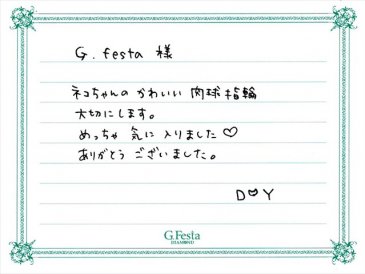 G.festa 様
ネコちゃんの かわいい 肉球指輪
大切にします。
めっちゃ 気に入りました♡
ありがとう ございました。
D♡Y
G.Festa
DIAMOND